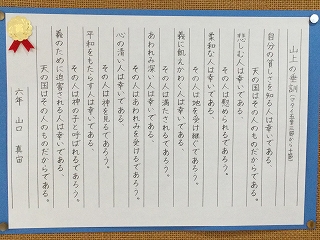 山上の垂訓（マタイ五章三節から十節）
自分の貧しさを知る人は幸いである、
天の国はその人のものだからである。
悲しむ人は幸いである、
その人は慰められるであろう。
柔和な人は幸いである、
その人は地を受け継ぐであろう。
義に飢えかわく人は幸いである、
その人は満たされるであろう。
あわれみ深い人は幸いである、
その人はあわれみを受けるであろう。
心の清い人は幸いである、
その人は神を見るであろう。
平和をもたらす人は幸いである、
その人は神の子と呼ばれるであろう。
義のために迫害される人は幸いである、
天の国はその人のものだからである。
六年　山口　真宙